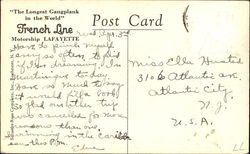 "The Longest Gangplank
in the World"
French Line
Motorship LAFAYETTE
Post Card
Wed Apr. 3rd
Have to pinch myself
every so often, to tell
if I'm dreaming. In
Martinique today.
Have so much to say
it would fill a book
So glad our other trip
was cancelled for more
reasons than one.
Swimming in the Caribbean
this P.M.
Miss Ella Husted
3106 Atlantic ave.
Atlantic City,
N.J.
U.S.A.